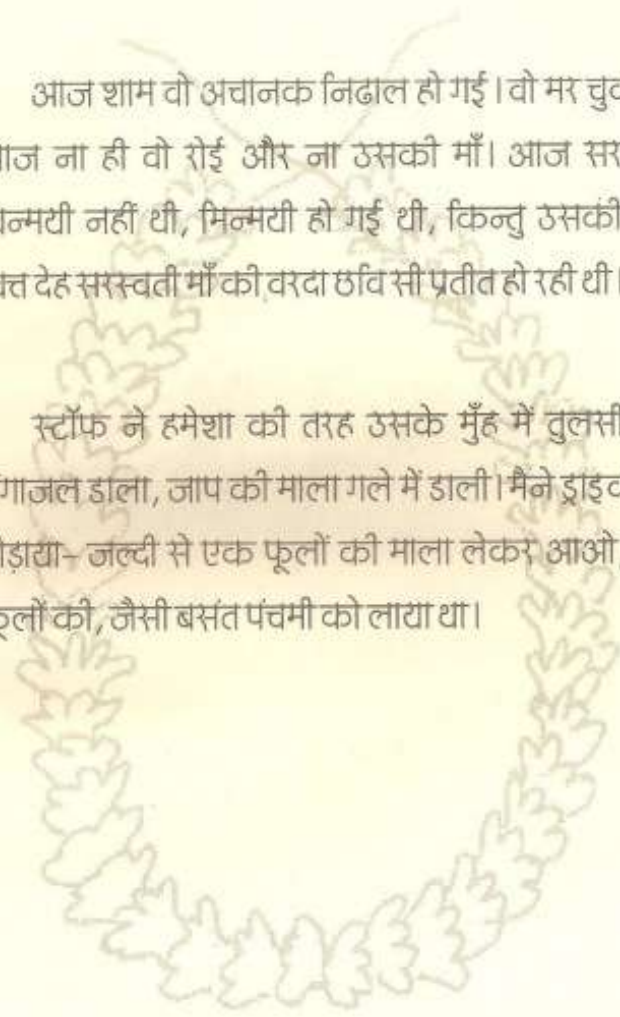 आज शाम वो अचानक निढाल हो गई। वो मर चुक
ाज ना ही वो रोई और ना उसकी माँ। आज सर
न्मयी नहीं थी, मिन्मयी हो गई थी, किन्तु उसकी
क्त देह सरस्वती माँ की वरदा छवि सी प्रतीत हो रही थी।
स्टॉफ ने हमेशा की तरह उसके मुँह में तुलसी
गाजल डाला, जाप की माला गले में डाली। मैने ड्राइव
ड़ाया- जल्दी से एक फूलों की माला लेकर आओ,
लों की, जैसी बसंत पंचमी को लाया था।